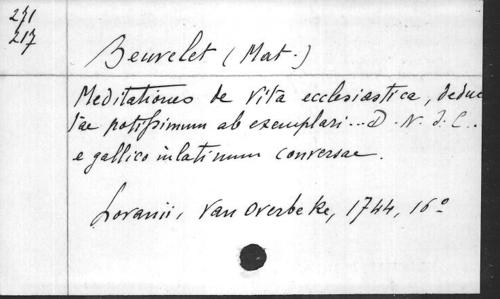 271
217
Beuvelet (Mat.)
Meditationes de vita ecclesiastica, deduc
tae potissimum ab exemplari... D. N. J. C..
e gallico in latinum conversae.
Lovanii, Van Overbeke, 1744, 16º